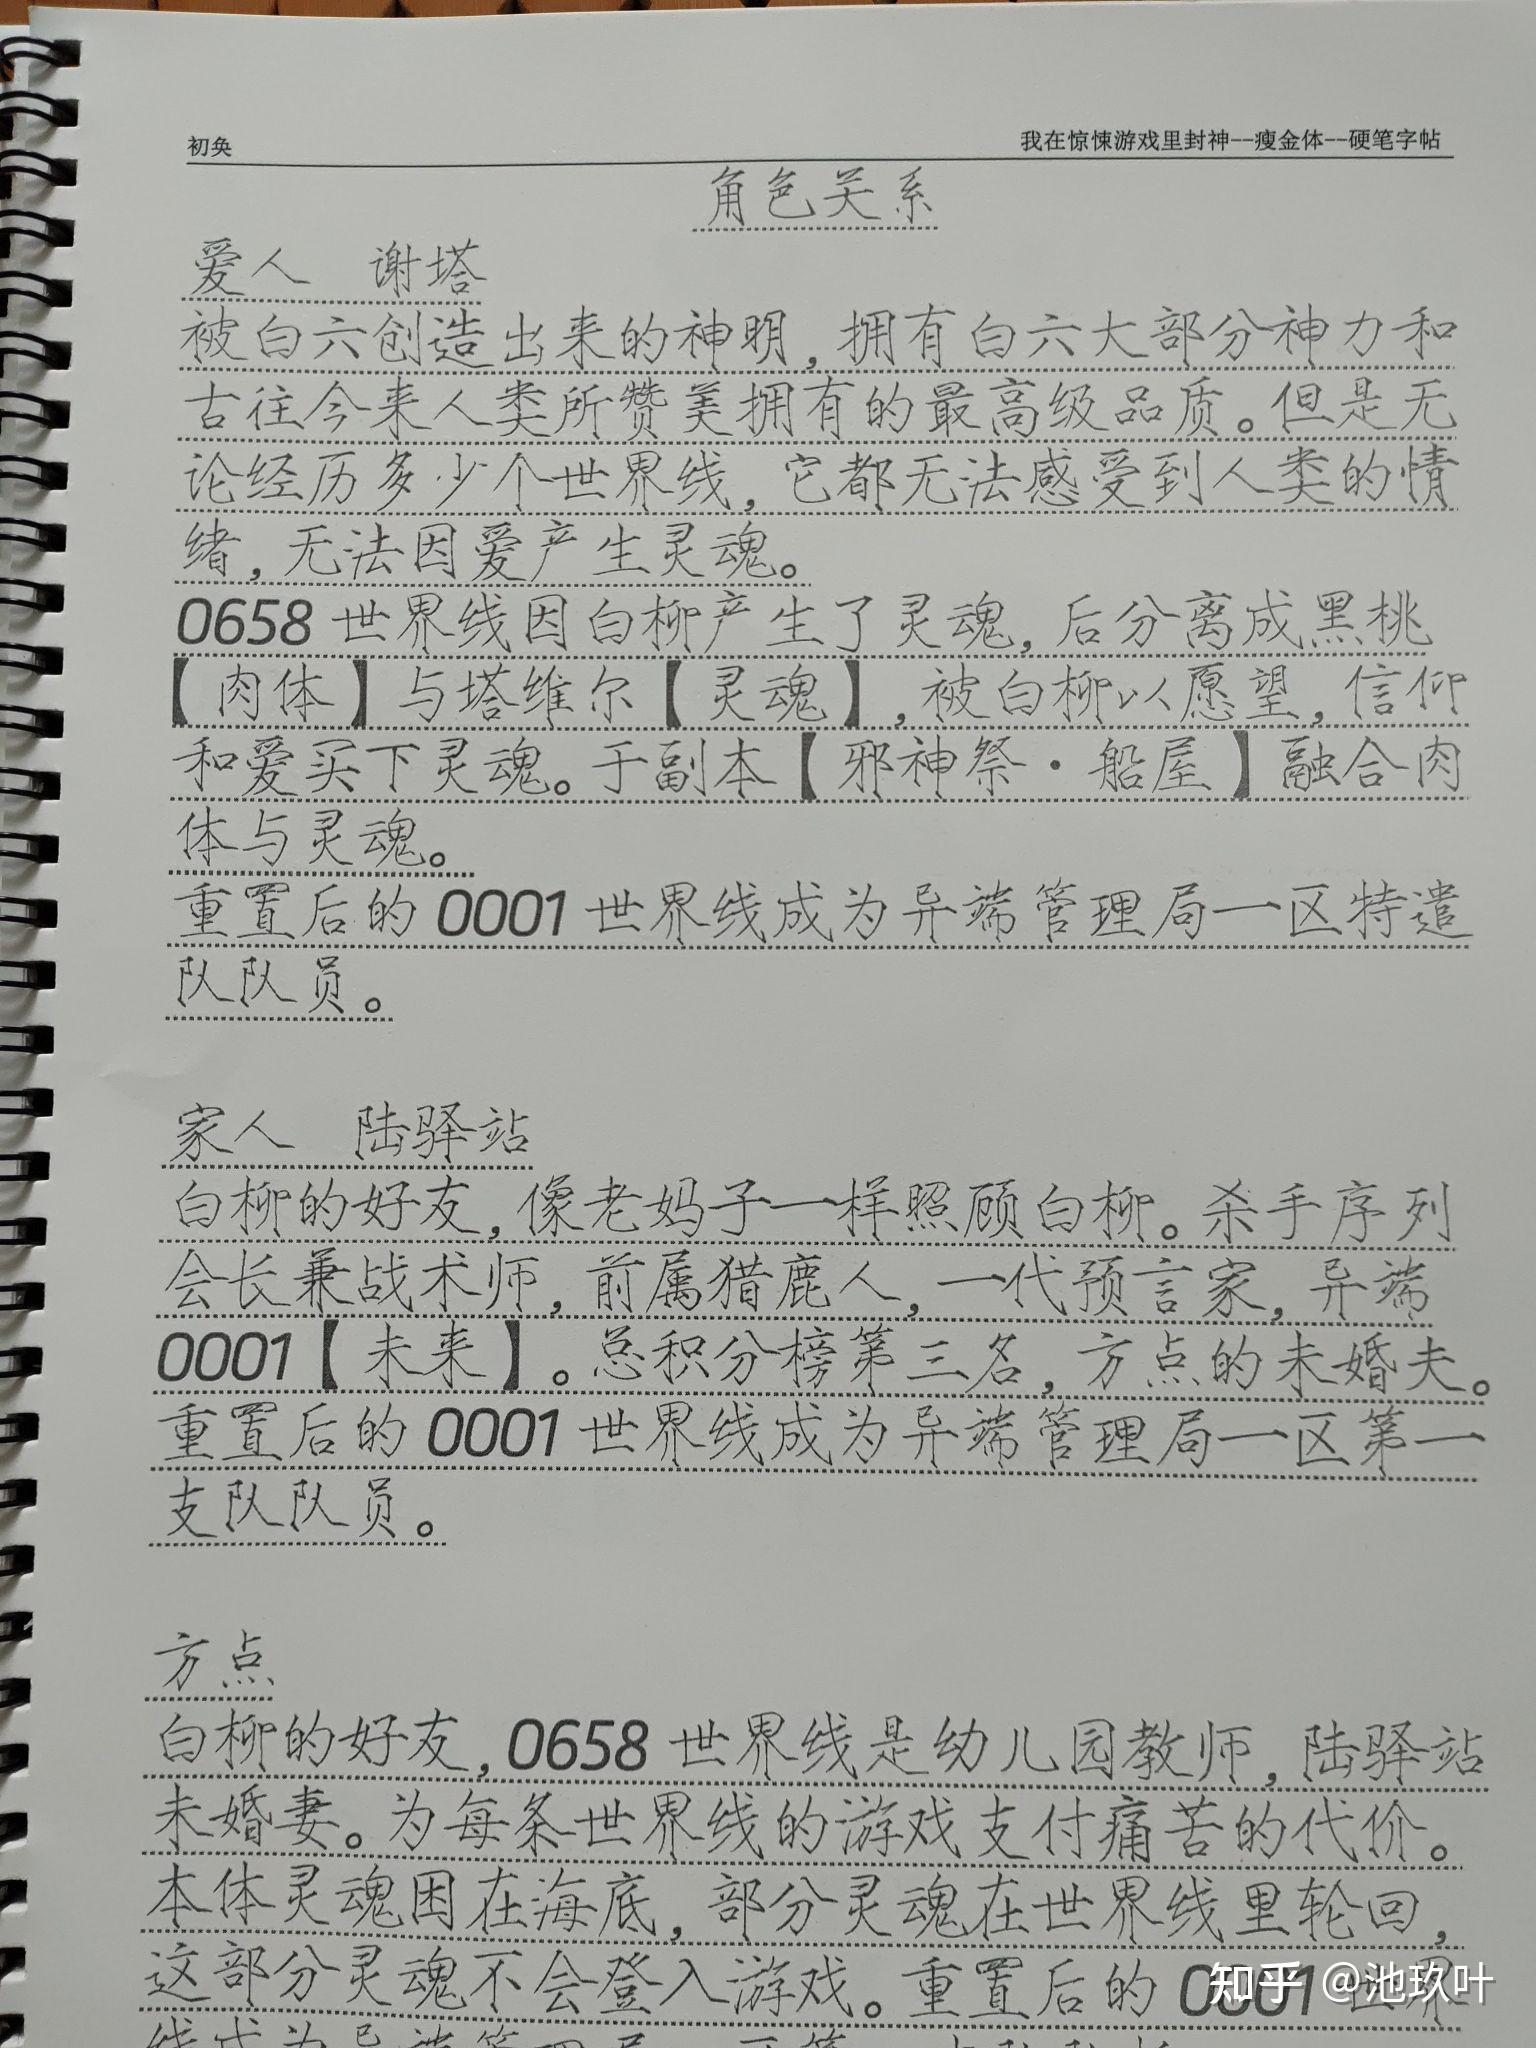 初奂
我在惊悚游戏里封神--瘦金体--硬笔字帖
角色关系
爱人 谢塔
被白六创造出来的神明,拥有白六大部分神力和
古往今来人类所赞美拥有的最高级品质。但是无
论经历多少个世界线,它都无法感受到人类的情
绪,无法因爱产生灵魂。
0658世界线因白柳产生了灵魂,后分离成黑桃
【肉体】与塔维尔【灵魂】,被白柳以愿望,信仰
和爱买下灵魂。于副本【邪神祭·船屋】融合肉
体与灵魂。
重置后的0001世界线成为异端管理局一区特遣
队队员。
家人 陆驿站
白柳的好友,像老妈子一样照顾白柳。杀手序列
会长兼战术师,前属猎鹿人,一代预言家,异端
0001【未来】。总积分榜第三名,方点的未婚夫。
重置后的0001世界线成为异端管理局一区第一
支队队员。
方点
白柳的好友,0658世界线是幼儿园教师,陆驿站
未婚妻。为每条世界线的游戏支付痛苦的代价。
本体灵魂困在海底,部分灵魂在世界线里轮回,
这部分灵魂不会登入游戏。重置后的0001世界
知乎 @池玖叶